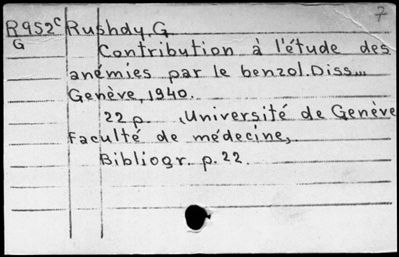 7
R952c Rushdy, G.
G Contribution à l'étude des
anémies par le benzol. Diss...
Genève, 1940.
22 p. (Université de Genève
Faculté de médecine,
Bibliogr. p. 22.